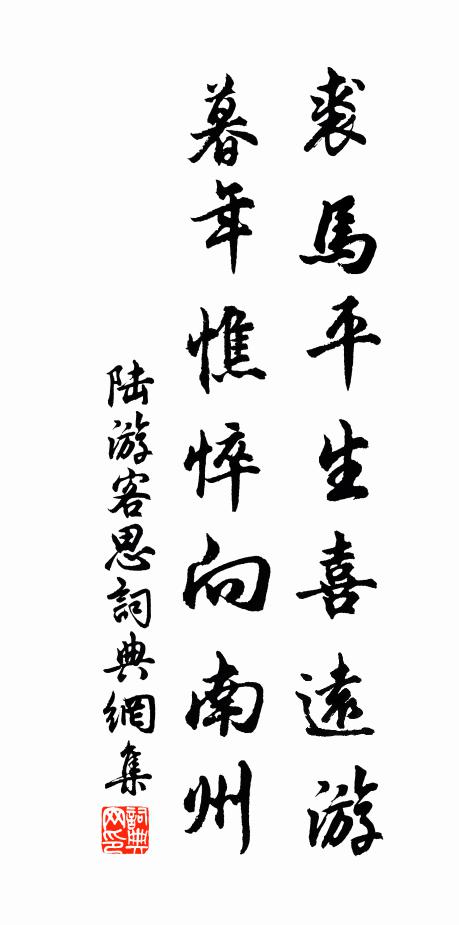 裘馬平生喜遠游
暮年憔悴向南州
陆游客思詞典網集
詞典网印